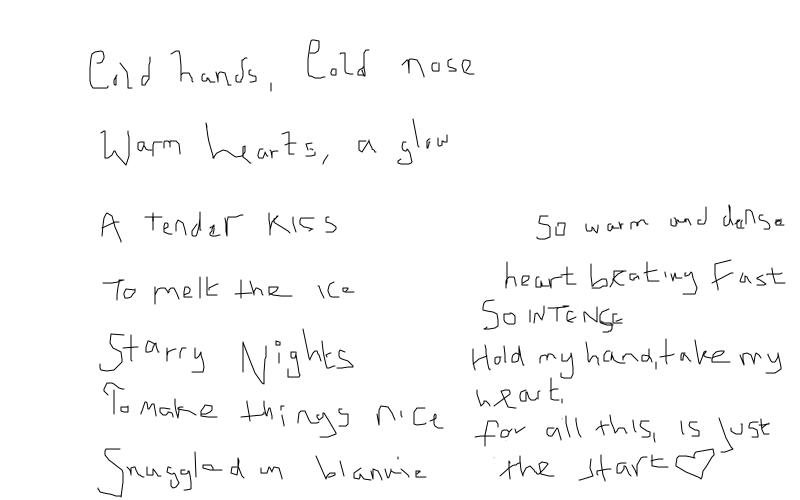 Cold hands, Cold nose
Warm hearts, a glow
A tender kiss
To melt the ice
Starry Nights
To make things nice
Snuggled in blankie
So warm and dense
heart beating Fast
So INTENSE
Hold my hand, take my
heart,
for all this, is just
the start♡